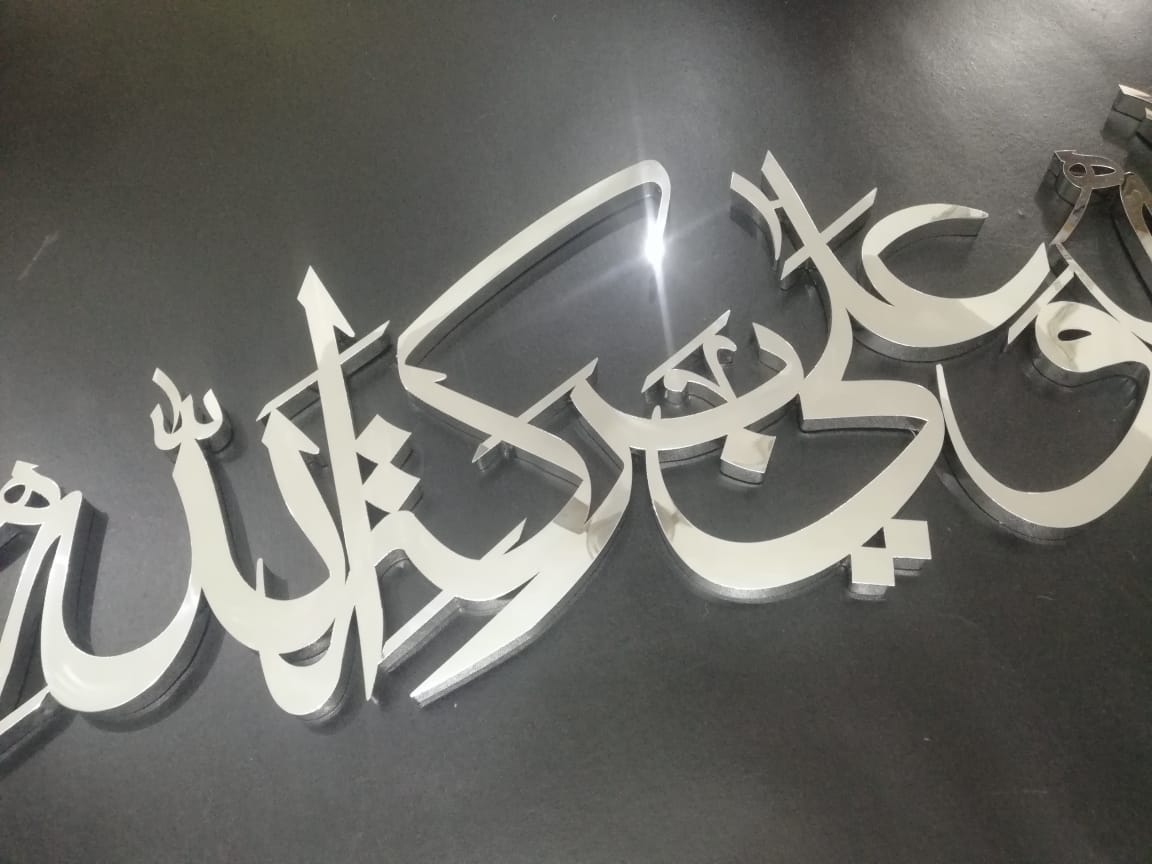 وعلي بركة الله